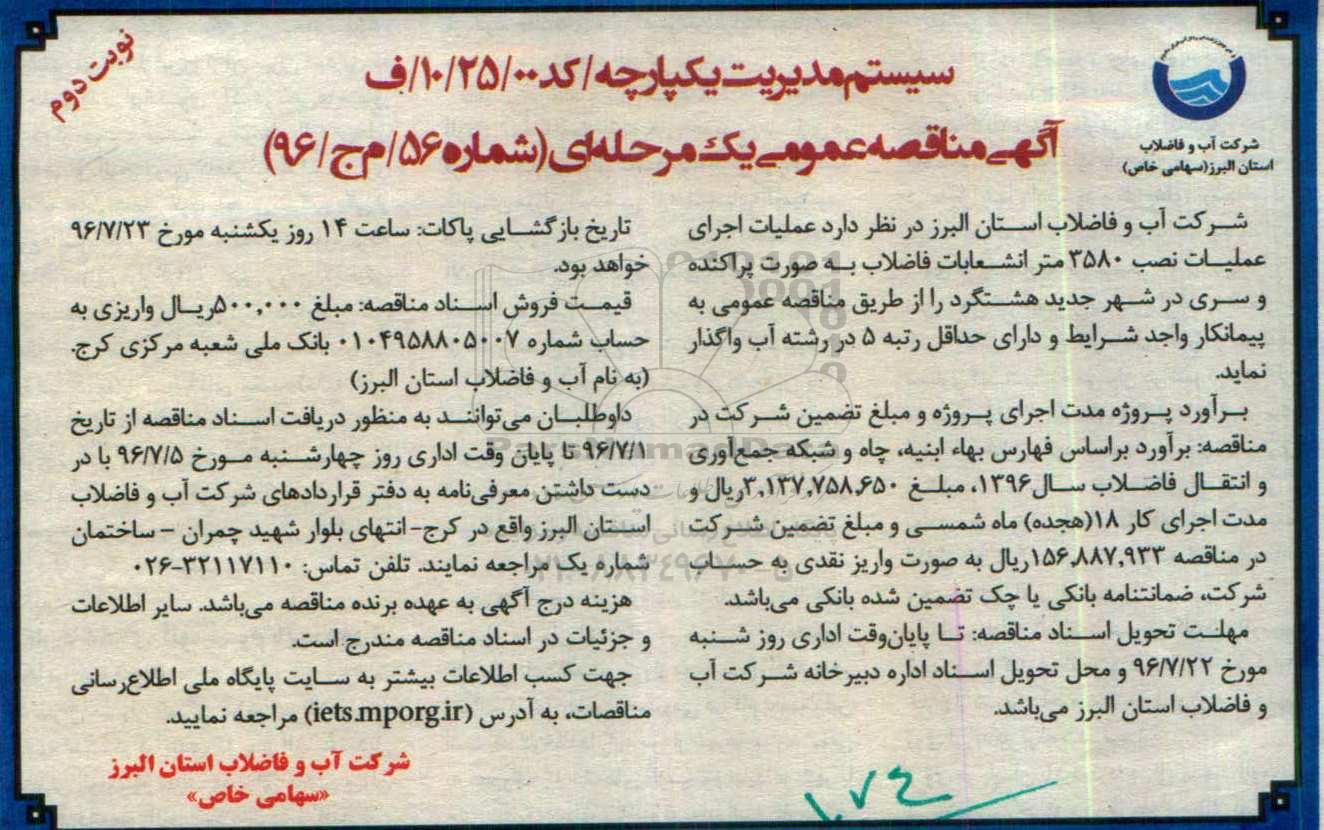 نوبت دوم
سیستم مدیریت یکپارچه/کد۱۰/۲۵/۰۰/ف
آگهی مناقصه عمومی یک مرحله‌ای (شماره ۵۶/م ج/۹۶)
شرکت آب و فاضلاب
استان البرز(سهامی خاص)
شرکت آب و فاضلاب استان البرز در نظر دارد عملیات اجرای
عملیات نصب ۳۵۸۰ متر انشعابات فاضلاب به صورت پراکنده
و سری در شهر جدید هشتگرد را از طریق مناقصه عمومی به
پیمانکار واجد شرایط و دارای حداقل رتبه ۵ در رشته آب واگذار
نماید.
برآورد پروژه مدت اجرای پروژه و مبلغ تضمین شرکت در
مناقصه: برآورد براساس فهارس بهاء ابنیه، چاه و شبکه جمع‌آوری
و انتقال فاضلاب سال۱۳۹۶، مبلغ ۳,۱۳۷,۷۵۸,۶۵۰ریال و
مدت اجرای کار ۱۸(هجده) ماه شمسی و مبلغ تضمین شرکت
در مناقصه ۱۵۶,۸۸۷,۹۳۳ریال به صورت واریز نقدی به حساب
شرکت، ضمانتنامه بانکی یا چک تضمین شده بانکی می‌باشد.
مهلت تحویل اسناد مناقصه: تا پایان‌وقت اداری روز شنبه
مورخ ۹۶/۷/۲۲ و محل تحویل اسناد اداره دبیرخانه شرکت آب
و فاضلاب استان البرز می‌باشد.
تاریخ بازگشایی پاکات: ساعت ۱۴ روز یکشنبه مورخ ۹۶/۷/۲۳
خواهد بود.
قیمت فروش اسناد مناقصه: مبلغ ۵۰۰,۰۰۰ریال واریزی به
حساب شماره ۰۱۰۴۹۵۸۸۰۵۰۰۷ بانک ملی شعبه مرکزی کرج.
(به نام آب و فاضلاب استان البرز)
داوطلبان می‌توانند به منظور دریافت اسناد مناقصه از تاریخ
۹۶/۷/۱ تا پایان وقت اداری روز چهارشنبه مورخ ۹۶/۷/۵ با در
دست داشتن معرفی‌نامه به دفتر قراردادهای شرکت آب و فاضلاب
استان البرز واقع در کرج- انتهای بلوار شهید چمران - ساختمان
شماره یک مراجعه نمایند. تلفن تماس: ۳۲۱۱۷۱۱۰-۰۲۶
هزینه درج آگهی به عهده برنده مناقصه می‌باشد. سایر اطلاعات
و جزئیات در اسناد مناقصه مندرج است.
جهت کسب اطلاعات بیشتر به سایت پایگاه ملی اطلاع‌رسانی
مناقصات، به آدرس (iets.mporg.ir) مراجعه نمایید.
شرکت آب و فاضلاب استان البرز
«سهامی خاص»
۱۷۴